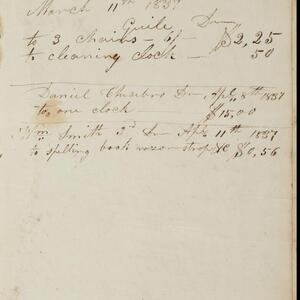 March 11th 1837
Guile Dr
to 3 chairs - 6/- $2,25
to cleaning clock - 50
Daniel Chesbro Dr Apl 8th 1837
to one clock $15,00
Wm Smith 2d Dr Apl 11th 1837
to spelling book razor strop &c $0,56